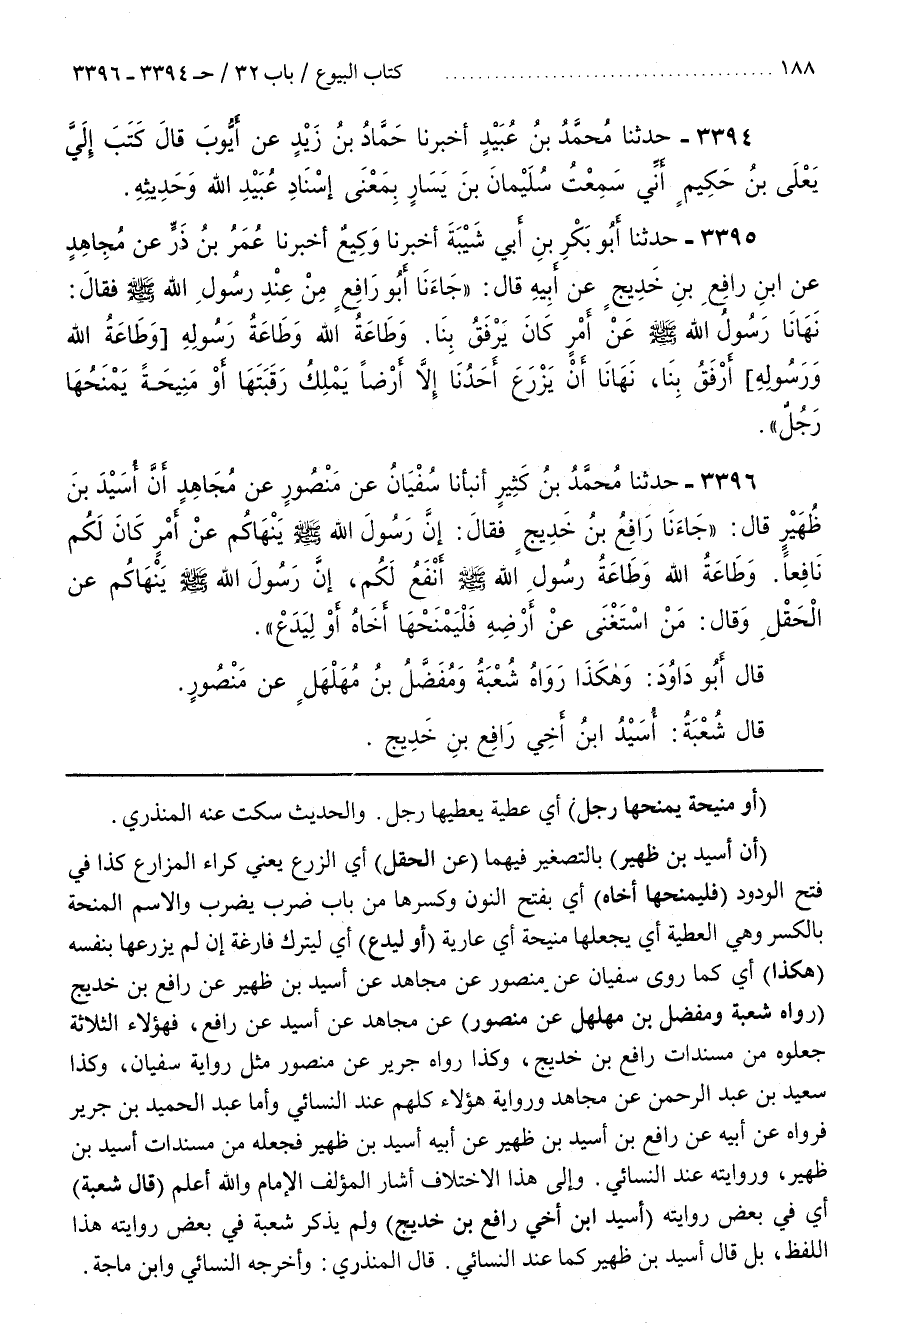 ١٨٨ ........................................ كتاب البيوع / باب ٣٢ / حـ ٣٣٩٤ ـ ٣٣٩٦
٣٣٩٤ ـ حدثنا مُحمَّدُ بنُ عُبَيْدٍ أخبرنا حَمَّادُ بنُ زَيْدٍ عن أَيُّوبَ قالَ كَتَبَ إِلَيَّ
يَعْلَى بنُ حَكِيمٍ أَنِّي سَمِعْتُ سُلَيْمانَ بنَ يَسَارٍ بِمَعْنَى إسْنَادِ عُبَيْدِ الله وَحَدِيثِهِ.
٣٣٩٥ ـ حدثنا أَبُو بَكْرِ بنِ أَبي شَيْبَةَ أخبرنا وَكِيعٌ أخبرنا عُمَرُ بنُ ذَرٍّ عن مُجاهِدٍ
عن ابنِ رافِعِ بنِ خَدِيجٍ عن أَبِيهِ قال: «جَاءَنَا أَبُو رَافِعٍ مِنْ عِنْدِ رسولِ الله ﷺ فقالَ:
نَهَانَا رَسُولُ الله ﷺ عَنْ أَمْرٍ كَانَ يَرْفَقُ بِنَا. وَطَاعَةُ الله وَطَاعَةُ رَسُولِهِ [وَطَاعَةُ الله
وَرَسُولِهِ] أَرْفَقُ بِنَا، نَهَانَا أَنْ يَزْرَعَ أَحَدُنَا إِلَّا أَرْضاً يَمْلِكُ رَقَبَتَهَا أَوْ مَنِيحَةً يَمْنَحُهَا
رَجُلٌ».
٣٣٩٦ ـ حدثنا مُحمَّدُ بنُ كَثِيرٍ أنبأنا سُفْيَانُ عن مَنْصُورٍ عن مُجَاهِدٍ أَنَّ أُسَيْدَ بنَ
ظُهَيْرٍ قال: «جَاءَنَا رَافِعُ بنُ خَدِيجٍ فقالَ: إنَّ رَسُولَ الله ﷺ يَنْهَاكُم عنْ أَمْرٍ كَانَ لَكُم
نَافِعاً. وَطَاعَةُ الله وَطَاعَةُ رسولِ الله ﷺ أَنْفَعُ لَكُم، إنَّ رَسُولَ الله ﷺ يَنْهَاكُم عن
الْحَقْلِ وَقال: مَنْ اسْتَغْنَى عنْ أَرْضِهِ فَلْيَمْنَحْهَا أَخَاهُ أَوْ لِيَدَعْ».
قال أَبُو دَاوُدَ: وَهٰكَذَا رَوَاهُ شُعْبَةُ وَمُفَضَّلُ بنُ مُهَلْهَلٍ عن مَنْصُورٍ.
قال شُعْبَةُ: أُسَيْدُ ابنُ أَخِي رَافِعِ بنِ خَدِيجٍ.
(أو منيحة يمنحها رجل) أي عطية يعطيها رجل. والحديث سكت عنه المنذري.
(أن أسيد بن ظهير) بالتصغير فيهما (عن الحقل) أي الزرع يعني كراء المزارع كذا في
فتح الودود (فليمنحها أخاه) أي بفتح النون وكسرها من باب ضرب يضرب والاسم المنحة
بالكسر وهي العطية أي يجعلها منيحة أي عارية (أو ليدع) أي ليترك فارغة إن لم يزرعها بنفسه
(هكذا) أي كما روى سفيان عن منصور عن مجاهد عن أسيد بن ظهير عن رافع بن خديج
(رواه شعبة ومفضل بن مهلهل عن منصور) عن مجاهد عن أسيد عن رافع، فهؤلاء الثلاثة
جعلوه من مسندات رافع بن خديج، وكذا رواه جرير عن منصور مثل رواية سفيان، وكذا
سعيد بن عبد الرحمن عن مجاهد ورواية هؤلاء كلهم عند النسائي وأما عبد الحميد بن جرير
فرواه عن أبيه عن رافع بن أسيد بن ظهير عن أبيه أسيد بن ظهير فجعله من مسندات أسيد بن
ظهير، وروايته عند النسائي. وإلى هذا الاختلاف أشار المؤلف الإمام والله أعلم (قال شعبة)
أي في بعض روايته (أسيد ابن أخي رافع بن خديج) ولم يذكر شعبة في بعض روايته هذا
اللفظ، بل قال أسيد بن ظهير كما عند النسائي. قال المنذري: وأخرجه النسائي وابن ماجة.